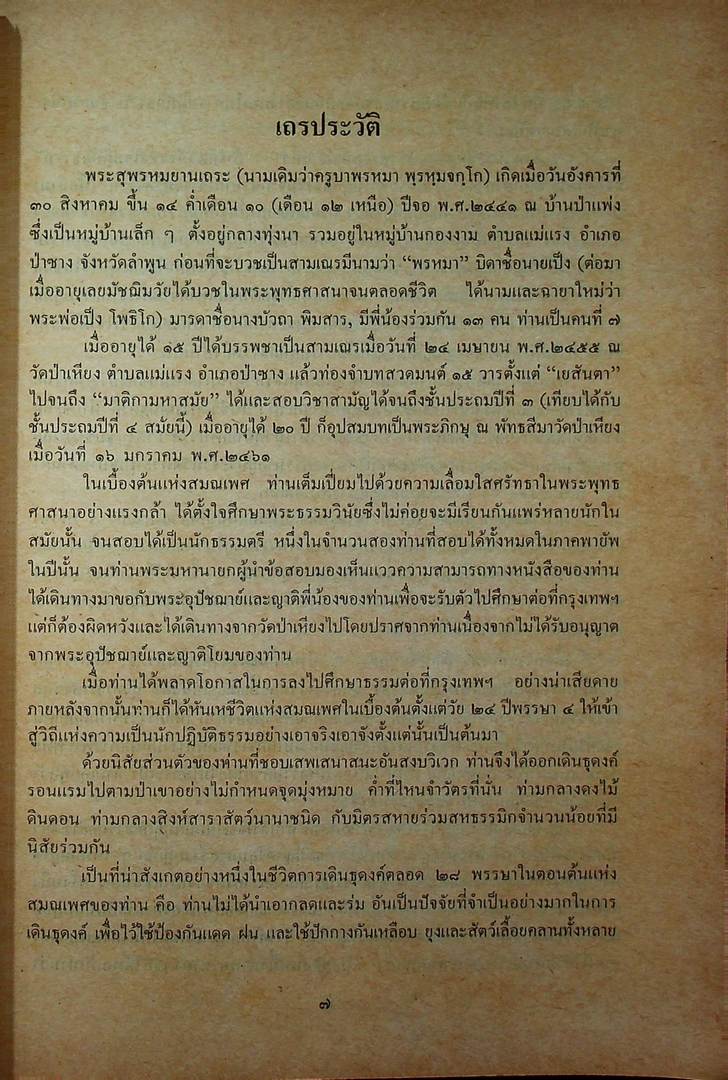 เถรประวัติ
พระสุพรหมยานเถระ (นามเดิมว่าครูบาพรหมา พฺรหฺมจกฺโก) เกิดเมื่อวันอังคารที่
๓๐ สิงหาคม ขึ้น ๑๔ ค่ำเดือน ๑๐ (เดือน ๑๒ เหนือ) ปีจอ พ.ศ.๒๔๔๑ ณ บ้านป่าแพ่ง
ซึ่งเป็นหมู่บ้านเล็ก ๆ ตั้งอยู่กลางทุ่งนา รวมอยู่ในหมู่บ้านกองงาม ตำบลแม่แรง อำเภอ
ป่าซาง จังหวัดลำพูน ก่อนที่จะบวชเป็นสามเณรมีนามว่า “พรหมา” บิดาชื่อนายเป็ง (ต่อมา
เมื่ออายุเลยมัชฌิมวัยได้บวชในพระพุทธศาสนาจนตลอดชีวิต ได้นามและฉายาใหม่ว่า
พระพ่อเป็ง โพธิโก) มารดาชื่อนางบัวถา พิมสาร, มีพี่น้องร่วมกัน ๑๓ คน ท่านเป็นคนที่ ๗
เมื่ออายุได้ ๑๕ ปีได้บรรพชาเป็นสามเณรเมื่อวันที่ ๒๔ เมษายน พ.ศ.๒๔๕๕ ณ
วัดป่าเหียง ตำบลแม่แรง อำเภอป่าซาง แล้วท่องจำบทสวดมนต์ ๑๕ วารตั้งแต่ “เยสันตา”
ไปจนถึง “มาติกามหาสมัย” ได้และสอบวิชาสามัญได้จนถึงชั้นประถมปีที่ ๓ (เทียบได้กับ
ชั้นประถมปีที่ ๔ สมัยนี้) เมื่ออายุได้ ๒๐ ปี ก็อุปสมบทเป็นพระภิกษุ ณ พัทธสีมาวัดป่าเหียง
เมื่อวันที่ ๑๖ มกราคม พ.ศ.๒๔๖๑
ในเบื้องต้นแห่งสมณเพศ ท่านเต็มเปี่ยมไปด้วยความเลื่อมใสศรัทธาในพระพุทธ
ศาสนาอย่างแรงกล้า ได้ตั้งใจศึกษาพระธรรมวินัยซึ่งไม่ค่อยจะมีเรียนกันแพร่หลายนักใน
สมัยนั้น จนสอบได้เป็นนักธรรมตรี หนึ่งในจำนวนสองท่านที่สอบได้ทั้งหมดในภาคพายัพ
ในปีนั้น จนท่านพระมหานายกผู้นำข้อสอบมองเห็นแววความสามารถทางหนังสือของท่าน
ได้เดินทางมาขอกับพระอุปัชฌาย์และญาติพี่น้องของท่านเพื่อจะรับตัวไปศึกษาต่อที่กรุงเทพฯ
แต่ก็ต้องผิดหวังและได้เดินทางจากวัดป่าเหียงไปโดยปราศจากท่านเนื่องจากไม่ได้รับอนุญาต
จากพระอุปัชฌาย์และญาติโยมของท่าน
เมื่อท่านได้พลาดโอกาสในการลงไปศึกษาธรรมต่อที่กรุงเทพฯ อย่างน่าเสียดาย
ภายหลังจากนั้นท่านก็ได้หันเหชีวิตแห่งสมณเพศในเบื้องต้นตั้งแต่วัย ๒๔ ปีพรรษา ๔ ให้เข้า
สู่วิถีแห่งความเป็นนักปฏิบัติธรรมอย่างเอาจริงเอาจังตั้งแต่นั้นเป็นต้นมา
ด้วยนิสัยส่วนตัวของท่านที่ชอบเสพเสนาสนะอันสงบวิเวก ท่านจึงได้ออกเดินธุดงค์
รอนแรมไปตามป่าเขาอย่างไม่กำหนดจุดมุ่งหมาย ค่ำที่ไหนจำวัตรที่นั่น ท่ามกลางดงไม้
ดินดอน ท่ามกลางสิงห์สาราสัตว์นานาชนิด กับมิตรสหายร่วมสหธรรมิกจำนวนน้อยที่มี
นิสัยร่วมกัน
เป็นที่น่าสังเกตอย่างหนึ่งในชีวิตการเดินธุดงค์ตลอด ๒๘ พรรษาในตอนต้นแห่ง
สมณเพศของท่าน คือ ท่านไม่ได้นำเอากลดและร่ม อันเป็นปัจจัยที่จำเป็นอย่างมากในการ
เดินธุดงค์ เพื่อไว้ใช้ป้องกันแดด ฝน และใช้ปักกางกันเหลือบ ยุงและสัตว์เลื้อยคลานทั้งหลาย
๗